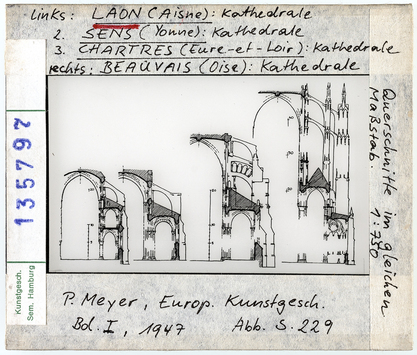 links: LAON (Aisne): Kathedrale
2. SENS (Yonne): Kathedrale
3. CHARTRES (Eure-et-Loir): Kathedrale
rechts: BEAUVAIS (Oise): Kathedrale
Querschnitte im gleichen
Maßstab. 1:750
135797
Kunstgesch.
Sem. Hamburg
P. Meyer, Europ. Kunstgesch.
Bd. I, 1947 Abb. S. 229